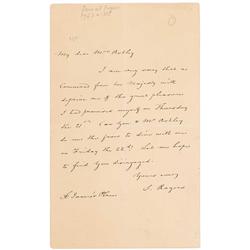 My dear Mrs Ashley
I am very sorry that a
Command from Her Majesty will
deprive me of the great pleasure
I had promised myself on Thursday
the 21st. Can you & Mr Ashley
do me the favor to dine with me
on Friday the 22d? Let me hope
to find you disengaged.
Yours ever
S. Rogers
St James's Place